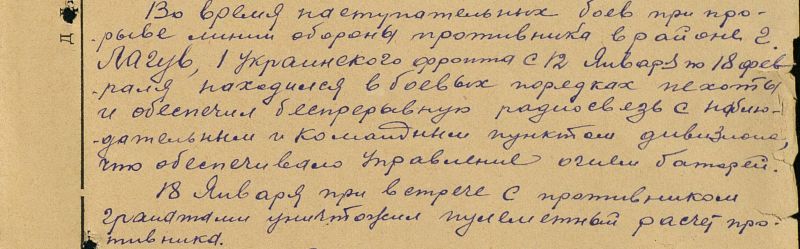 Во время наступательных боев при про-
-рыве линии обороны противника в районе г.
Лагув, 1 Украинского фронта с 12 Января по 18 фев-
-раля находился в боевых порядках пехоты
и обеспечил беспрерывную радиосвязь с наблю-
-дательным и командным пунктом дивизиона,
что обеспечивало управление огнем батарей.
18 Января при встрече с противником
гранатами уничтожил пулеметный расчет про-
-тивника.